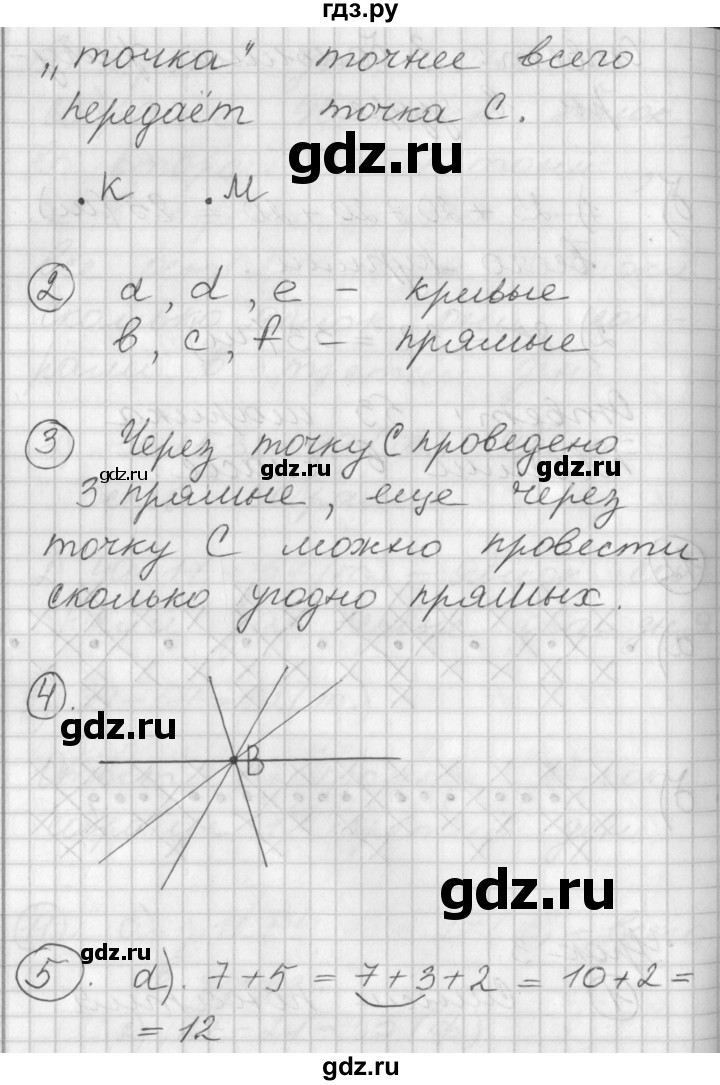 гдз.ру
„точка“ точнее всего
передаёт точка С.
gdz.ru
.К .М
② a, d, e – кривые
в, с, f – прямые
③ Через точку С проведено
gdz.ru gdz.ru gdz.ru
3 прямые, еще через
точку С можно провести
сколько угодно прямых.
④.
gdz.ru
В
gdz.ru
gdz.ru
⑤. а). 7+5 = 7+3+2 = 10+2 =
= 12
gdz.ru
gdz.ru